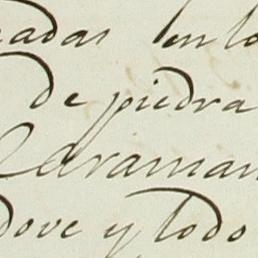 adas en lo
de piedra
Caraman
dove y todo